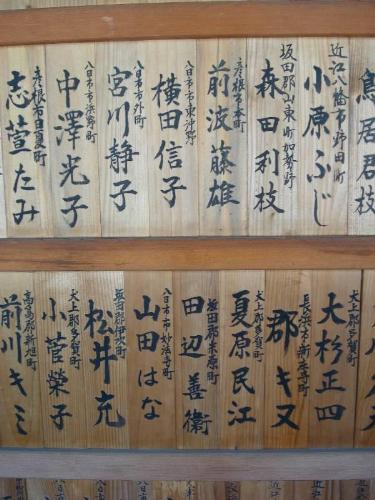 鳥居君枝
近江八幡市野田町
小原ふじ
坂田郡山東町加勢野
森田利枝
彦根市本町
前波藤雄
八日市市東沖野
横田信子
八日市市外町
宮川静子
八日市市浜野町
中澤光子
彦根市日夏町
志萱たみ
犬上郡多賀町
大杉正四
長浜市新庄寺町
郡キヌ
犬上郡多賀町
夏原民江
坂田郡米原町
田辺善衛
八日市市妙法寺町
山田はな
坂田郡伊吹町
松井充
犬上郡多賀町
小菅榮子
高島郡新旭町
前川キミ